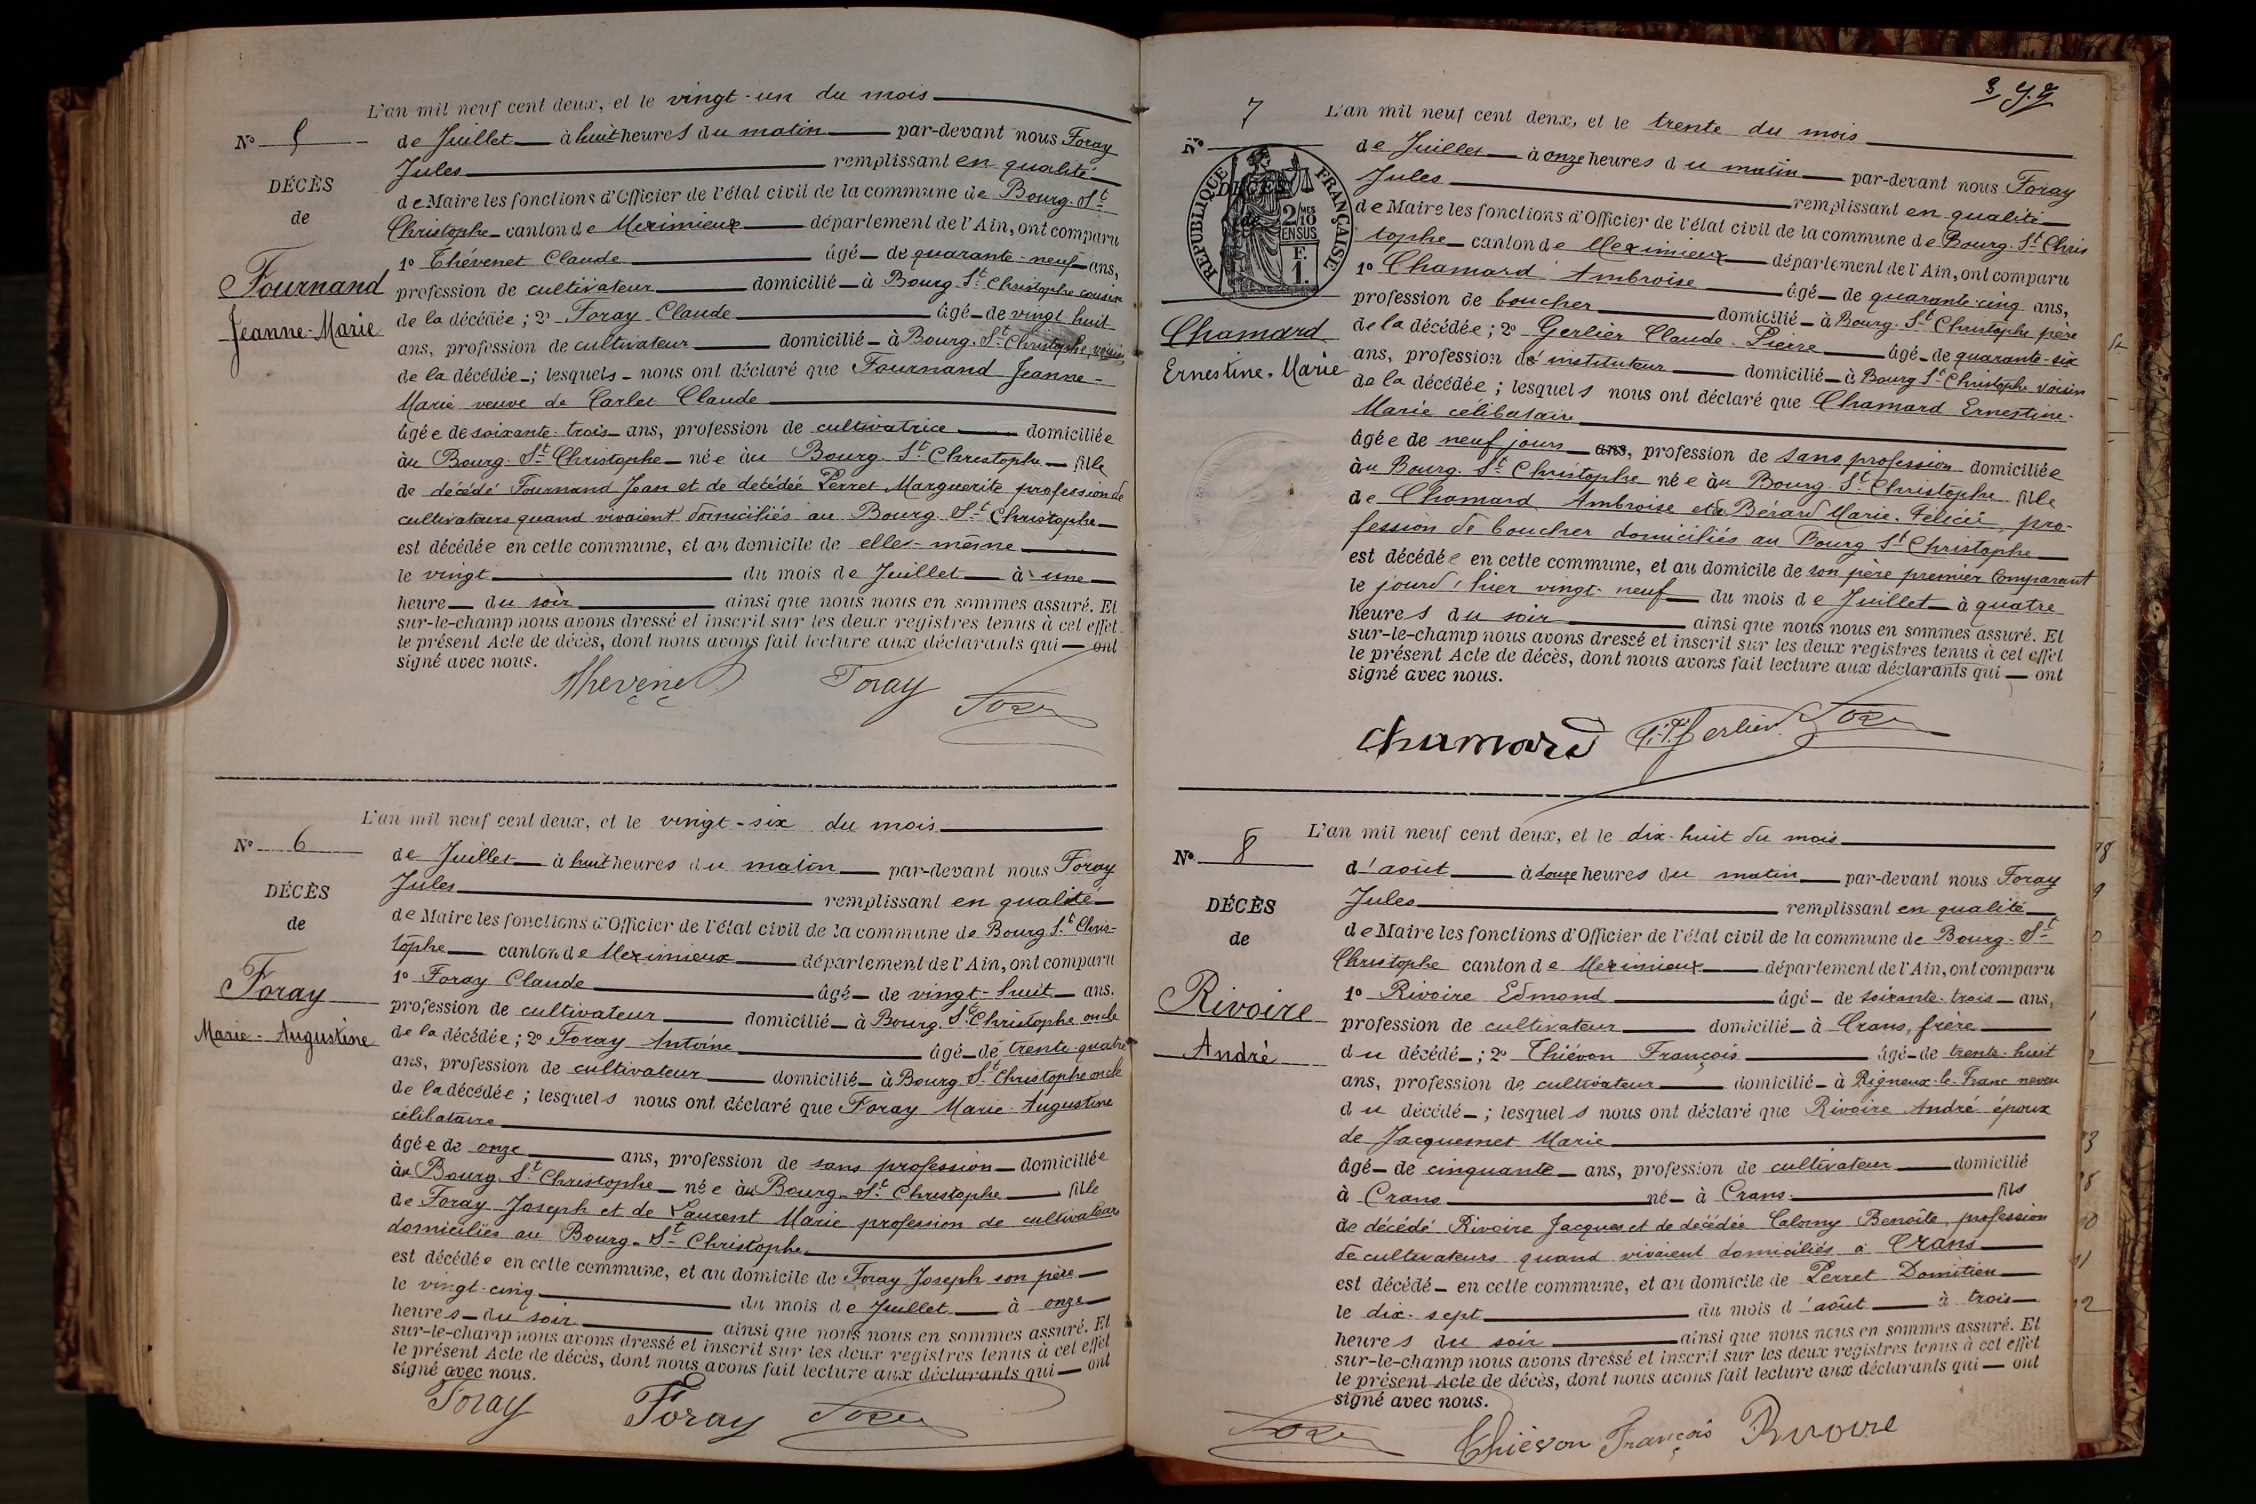 L'an mil neuf cent deux, et le vingt-un du mois
N° 5
de Juillet à huit heures du matin par-devant nous Foray
Jules remplissant en qualité
DÉCÈS
de Maire les fonctions d'Officier de l'état civil de la commune de Bourg-St
de
Christophe canton de Meximieux département de l'Ain, ont comparu
1° Thévenet Claude âgé de quarante-neuf ans,
Fournand
profession de cultivateur domicilié à Bourg St Christophe cousin
Jeanne-Marie
de la décédée; 2° Foray Claude âgé de vingt-huit
ans, profession de cultivateur domicilié à Bourg-St Christophe, voisin
de la décédée; lesquels nous ont déclaré que Fournand Jeanne-
Marie veuve de Carlet Claude
âgée de soixante-trois ans, profession de cultivatrice domiciliée
àu Bourg-St Christophe née àu Bourg-St Christophe fille
de décédé Fournand Jean et de décédée Perret Marguerite profession de
cultivateurs quand vivaient domiciliés au Bourg-St Christophe
est décédée en cette commune, et au domicile de elles-mêsne
le vingt du mois de Juillet à une
heure du soir ainsi que nous nous en sommes assuré. Et
sur-le-champ nous avons dressé et inscrit sur les deux registres tenus à cet effet
le présent Acte de décès, dont nous avons fait lecture aux déclarants qui ont
signé avec nous.
Thevenet Foray Foray
L'an mil neuf cent deux, et le vingt-six du mois
N° 6
de Juillet à huit heures du matin par-devant nous Foray
Jules remplissant en qualité
DÉCÈS
de Maire les fonctions d'Officier de l'état civil de la commune de Bourg St Chris-
de
tophe canton de Meximieux département de l'Ain, ont comparu
1° Foray Claude âgé de vingt-huit ans.
Foray
profession de cultivateur domicilié à Bourg-St Christophe oncle
Marie-Augustine
de la décédée; 2° Foray Antoine âgé de trente-quatre
ans, profession de cultivateur domicilié à Bourg-St Christophe oncle
de la décédée; lesquels nous ont déclaré que Foray Marie-Augustine
célibataire
âgée de onze ans, profession de sans profession domiciliée
àu Bourg St Christophe née àu Bourg-St Christophe fille
de Foray Joseph et de Laurent Marie profession de cultivateurs
domiciliés au Bourg-St Christophe
est décédée en cette commune, et au domicile de Foray Joseph son père
le vingt-cinq du mois de Juillet à onze
heures du soir ainsi que nous nous en sommes assuré. Et
sur-le-champ nous avons dressé et inscrit sur les deux registres tenus à cet effet
le présent Acte de décès, dont nous avons fait lecture aux déclarants qui ont
signé avec nous.
Foray Foray Foray
7
L'an mil neuf cent deux, et le trente du mois
N°
de Juillet à onze heures du matin par-devant nous Foray
Jules remplissant en qualité
DÉCÈS
RÉPUBLIQUE FRANÇAISE
2/10 MES
EN SUS
F.
1.
de Maire les fonctions d'Officier de l'état civil de la commune de Bourg-St Chris
tophe canton de Meximieux département de l'Ain, ont comparu
1° Chamard Ambroise âgé de quarante-cinq ans,
profession de boucher domicilié à Bourg-St Christophe père
Chamard
de la décédée; 2° Gerlier Claude-Pierre âgé de quarante-six
Ernestine-Marie
ans, profession de instituteur domicilié à Bourg St Christophe voisin
de la décédée; lesquels nous ont déclaré que Chamard Ernestine-
Marie célibataire
âgée de neuf jours ans, profession de sans profession domiciliée
àu Bourg-St Christophe née àu Bourg-St Christophe fille
de Chamard Ambroise et de Bérard Marie-Félicie, pro-
fession de boucher domiciliés au Bourg St Christophe
est décédée en cette commune, et au domicile de son père premier comparant
le jourd'hier vingt-neuf du mois de Juillet à quatre
heures du soir ainsi que nous nous en sommes assuré. Et
sur-le-champ nous avons dressé et inscrit sur les deux registres tenus à cet effet
le présent Acte de décès, dont nous avons fait lecture aux déclarants qui ont
signé avec nous.
chamard Gerlier Foray
L'an mil neuf cent deux, et le dix-huit du mois
N° 8
d'août à douze heures du matin par-devant nous Foray
Jules remplissant en qualité
DÉCÈS
de Maire les fonctions d'Officier de l'état civil de la commune de Bourg-St
de
Christophe canton de Meximieux département de l'Ain, ont comparu
1° Rivoire Edmond âgé de soixante-trois ans,
Rivoire
profession de cultivateur domicilié à Crans, frère
André
du décédé; 2° Thiévon François âgé de trente-huit
ans, profession de cultivateur domicilié à Rigneux-le-Franc neveu
du décédé; lesquels nous ont déclaré que Rivoire André époux
de Jacquemet Marie
âgé de cinquante ans, profession de cultivateur domicilié
à Crans né à Crans fils
de décédé Rivoire Jacques et de décédée Calomy Benoîte, profession
de cultivateurs quand vivaient domiciliés à Crans
est décédé en cette commune, et au domicile de Perret Domitien
le dix-sept du mois d'août à trois
heures du soir ainsi que nous nous en sommes assuré. Et
sur-le-champ nous avons dressé et inscrit sur les deux registres tenus à cet effet
le présent Acte de décès, dont nous avons fait lecture aux déclarants qui ont
signé avec nous.
Foray Thiévon François Rivoire